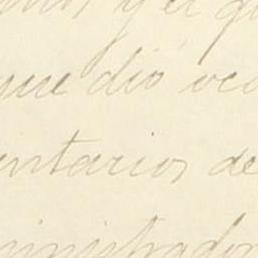 y el q
que dió oca
entarios de
ministrador